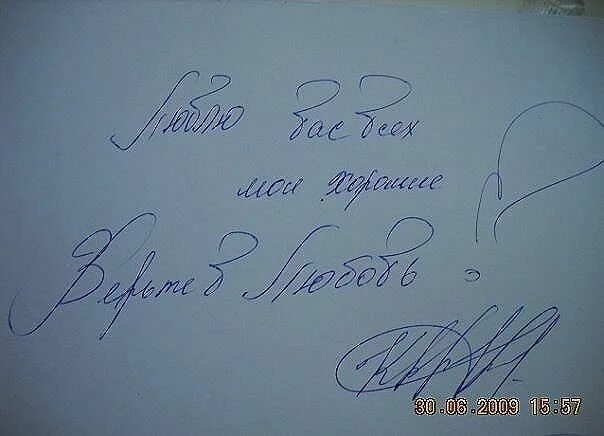 Люблю Вас Всех
мои хорошие
Верьте в Любовь
30.06.2009 15:57